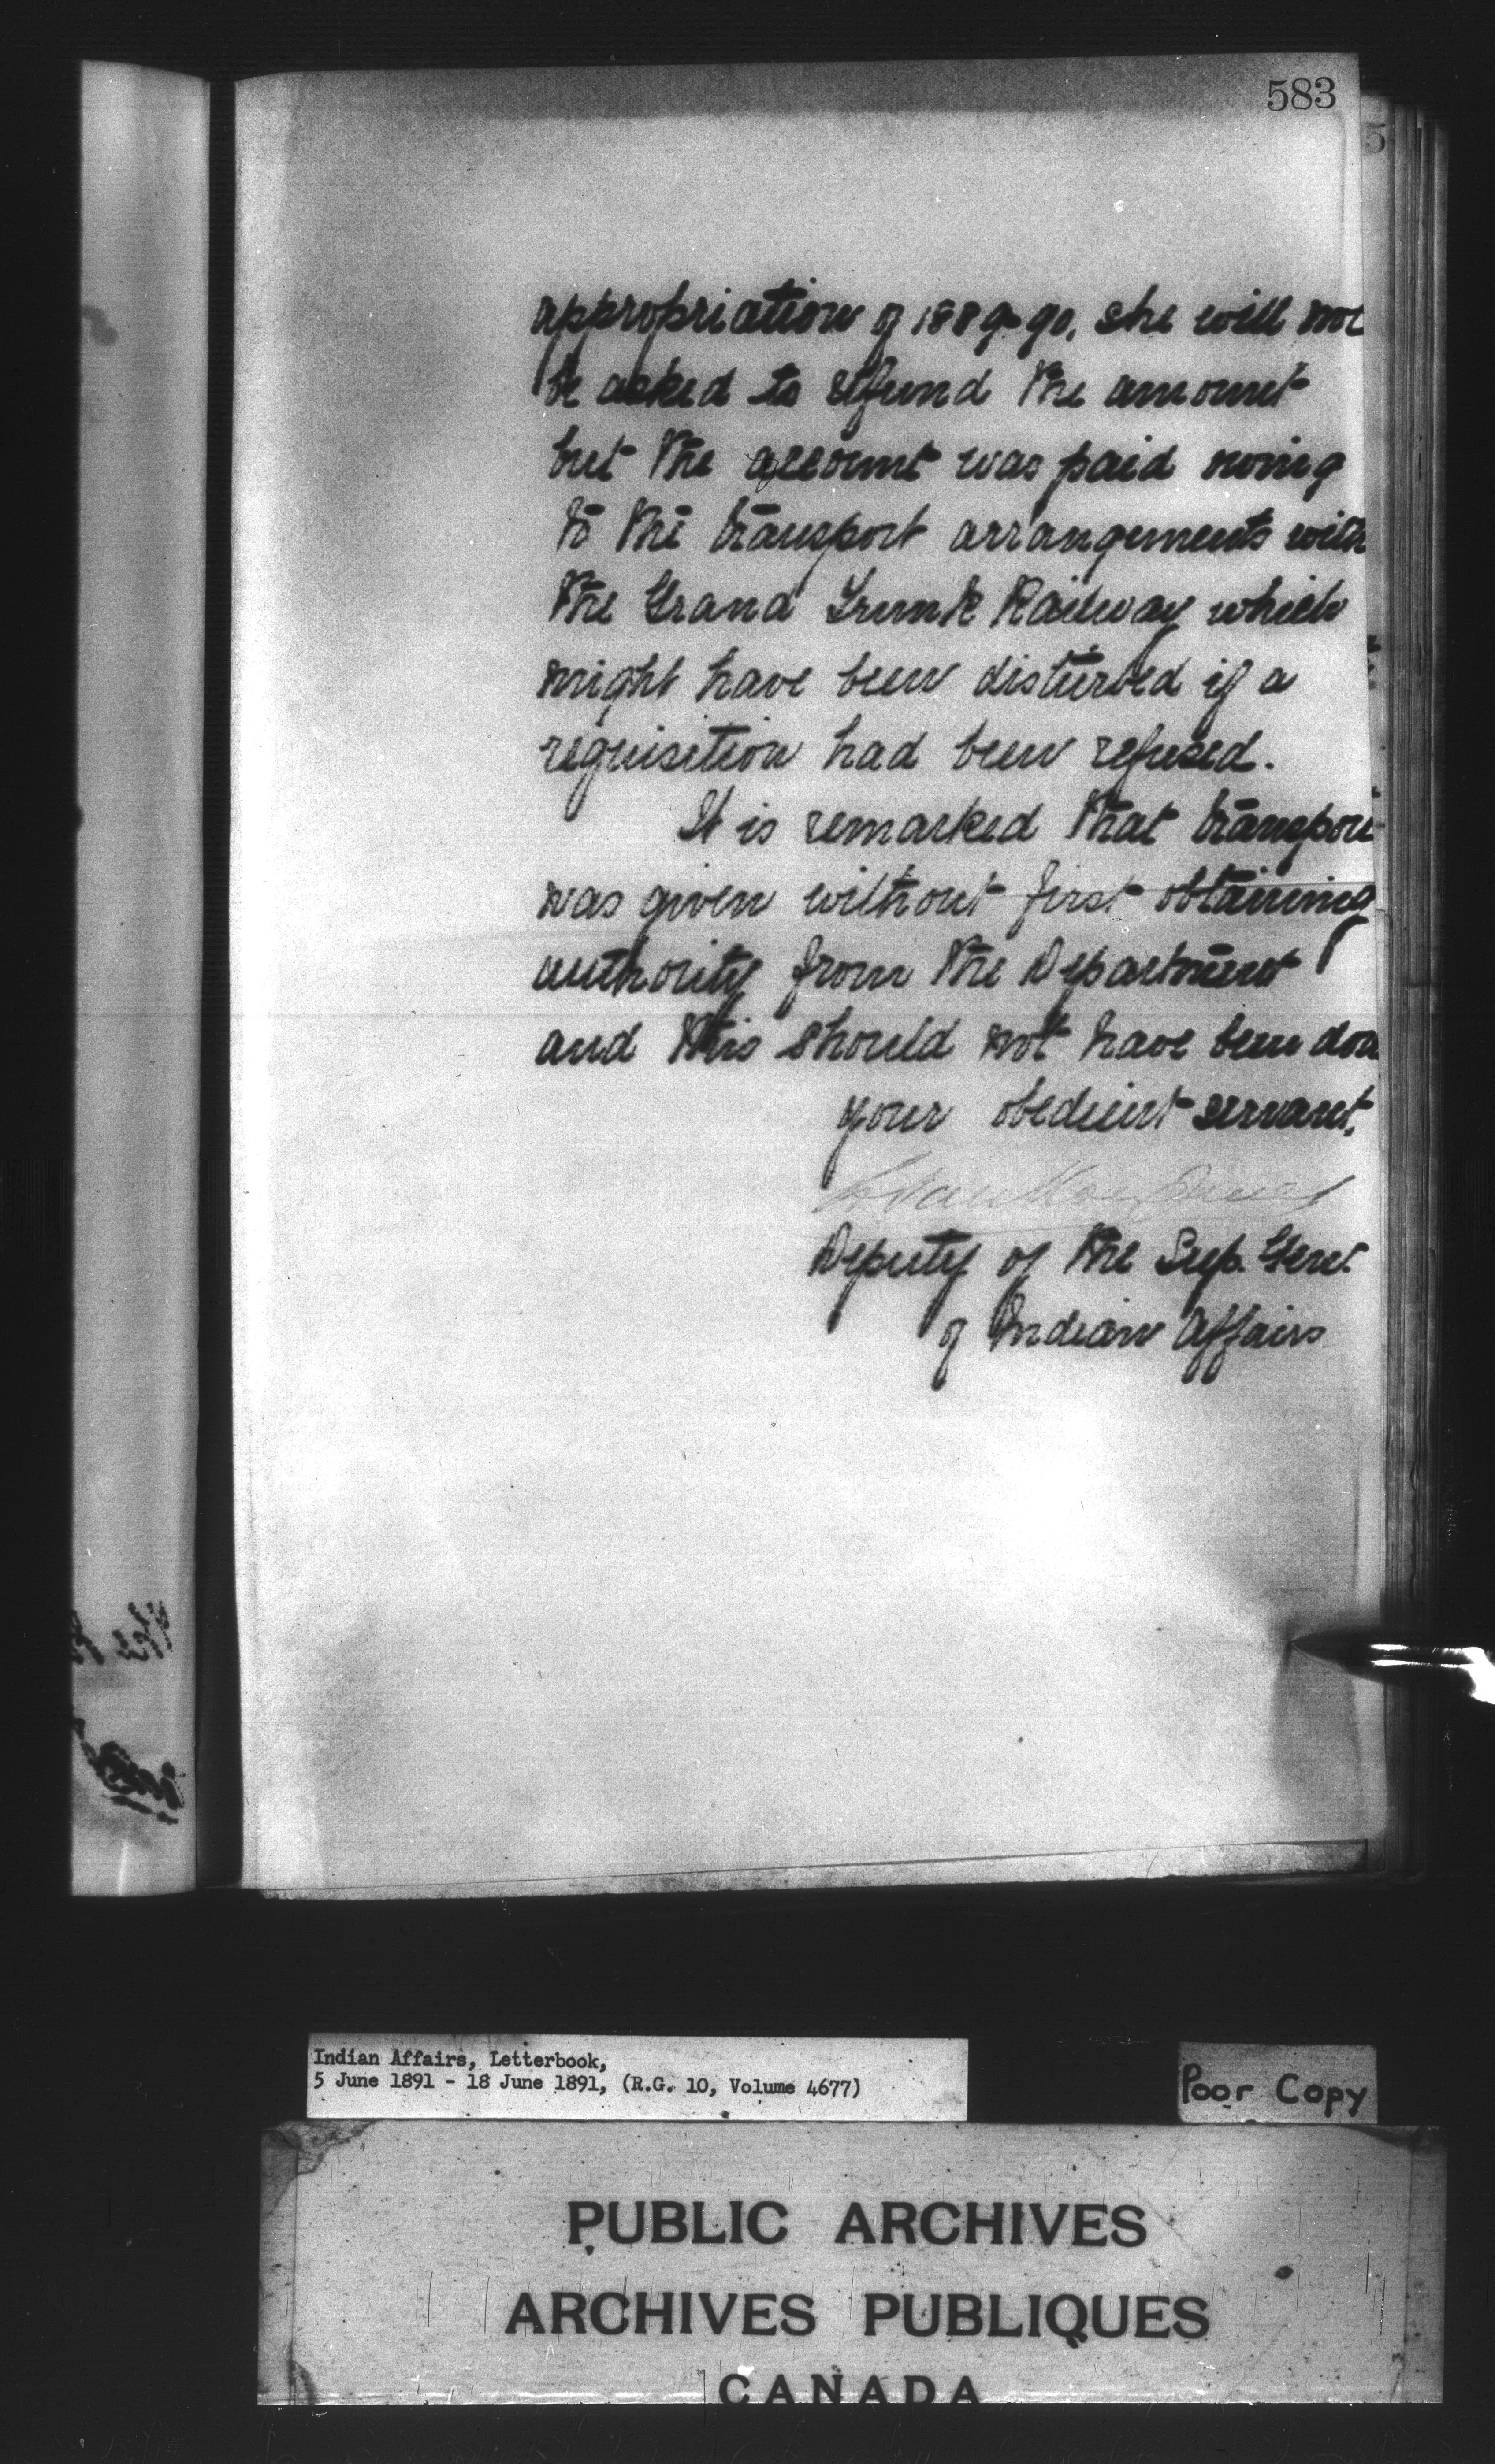 583
5
appropriation of 1889-90, she will not
be asked to refund the amount
but the account was paid owing
to the transport arrangements with
the Grand Trunk Railway which
might have been disturbed if a
requisition had been refused.
It is remarked that transport
was given without first obtaining
authority from the Department
and this should not have been don
your obedient servant,
Deputy of the Sup. Genl
of Indian Affairs
Indian Affairs, Letterbook,
5 June 1891 - 18 June 1891, (R.G. 10, Volume 4677)
Poor Copy
PUBLIC ARCHIVES
ARCHIVES PUBLIQUES
CANADA